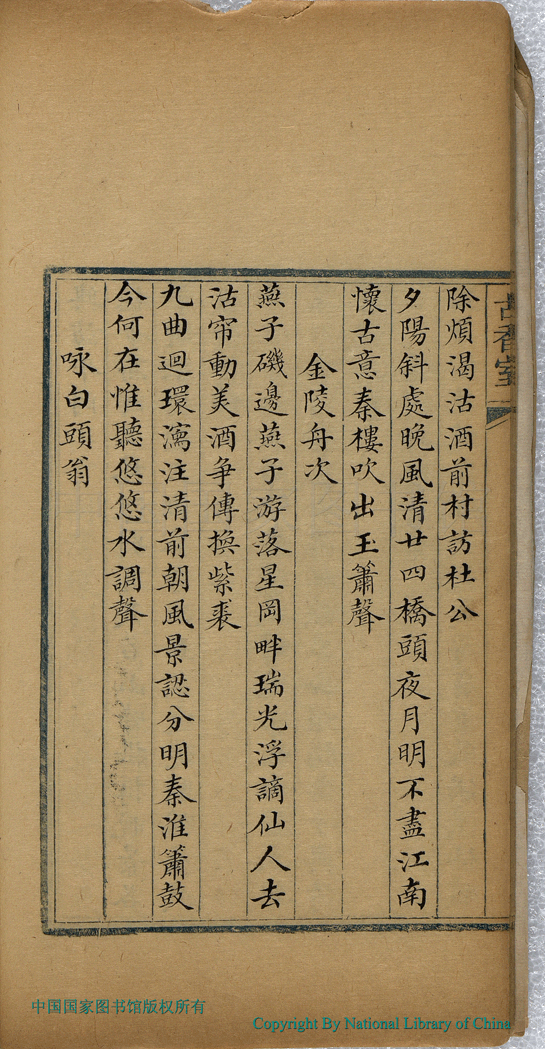 古香室
除煩渴沽酒前村訪杜公
夕陽斜處晚風清廿四橋頭夜月明不盡江南
懷古意秦樓吹出玉簫聲
金陵舟次
燕子磯邊燕子游落星岡畔瑞光浮謫仙人去
沽帘動美酒爭傳換紫裘
九曲迴環瀉注清前朝風景認分明秦淮簫鼓
今何在惟聽悠悠水調聲
咏白頭翁
中国国家图书馆版权所有
Copyright By National Library of China